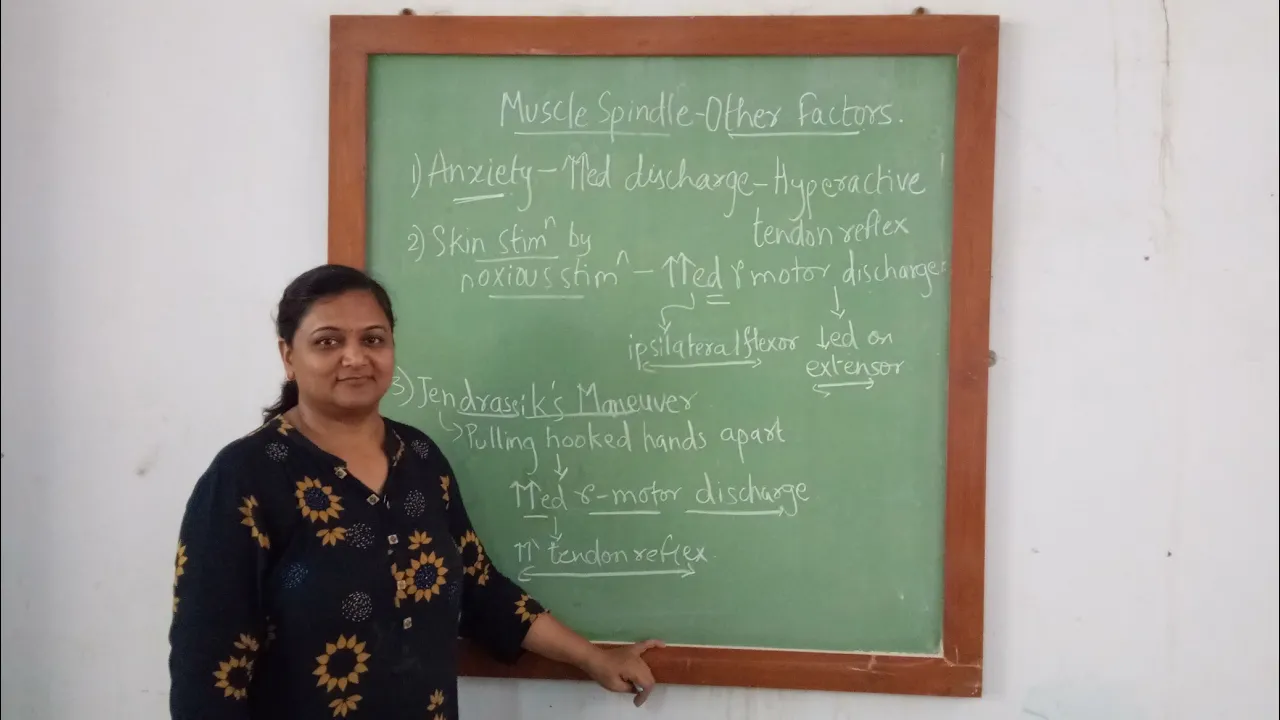 Muscle Spindle-Other Factors.
1) Anxiety - ↑↑ed discharge - Hyperactive
tendon reflex
2) Skin stimⁿ by
noxious stimⁿ - ↑↑ed γ motor discharge
ipsilateral flexor ↓ed on
extensor
3) Jendrassik's Maneuver
↳ Pulling hooked hands apart
↓
↑↑ed γ-motor discharge
↓
↑↑ tendon reflex